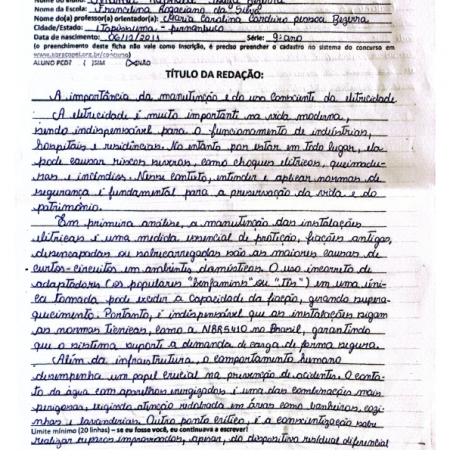 Nome da Escola: Francelina Rogaciano da Silva
Nome do(a) professor(a) orientador(a): Maria Carolina Cordeiro pessoa Bezerra
Cidade/Estado: Itapissuma - pernambuco
Data de nascimento: 06/12/2011 Série: 9º ano
(o preenchimento deste ficha não vale como inscrição, é preciso preencher o cadastro no sistema do concurso em
www.abracopel.org.br/concurso)
ALUNO PCD? ( )SIM (X)NÃO
TÍTULO DA REDAÇÃO:
A importância da manutenção e do uso consciente da eletricidade
A eletricidade é muito importante na vida moderna,
sendo indispensável para o funcionamento de indústrias,
hospitais e residências. No entanto por estar em todo lugar, ela
pode causar riscos severos, como choques elétricos, queimadu-
ras e incêndios. Nesse contexto, entender e aplicar normas de
segurança é fundamental para a preservação da vida e do
patrimônio.
Em primeira análise, a manutenção das instalações
elétricas é uma medida essencial de proteção, fiações antigas,
desencapadas ou sobrecarregadas são as maiores causas de
curtos-circuitos em ambientes domésticos. O uso incorreto de
adaptadores (os populares "benjamins" ou "Ts") em uma úni-
ca tomada pode exceder a capacidade da fiação, gerando supera-
quecimento. Portanto, é indispensável que as instalações sigam
as normas técnicas, como a NBR5410 no Brasil, garantindo
que o sistema suporte a demanda de carga de forma segura.
Além da infraestrutura, o comportamento humano
desempenha um papel crucial na prevenção de acidentes. O conta-
to da água com aparelhos energizados é uma das combinações mais
perigosas, exigindo atenção redobrada em áreas como banheiros, cozi-
nhas e lavanderias. Outro ponto crítico, é a conscientização sobre
Limite mínimo (20 linhas) – se eu fosse você, eu continuava a escrever!
realizar reparos improvisados, apesar, do dispositivo residual diferencial